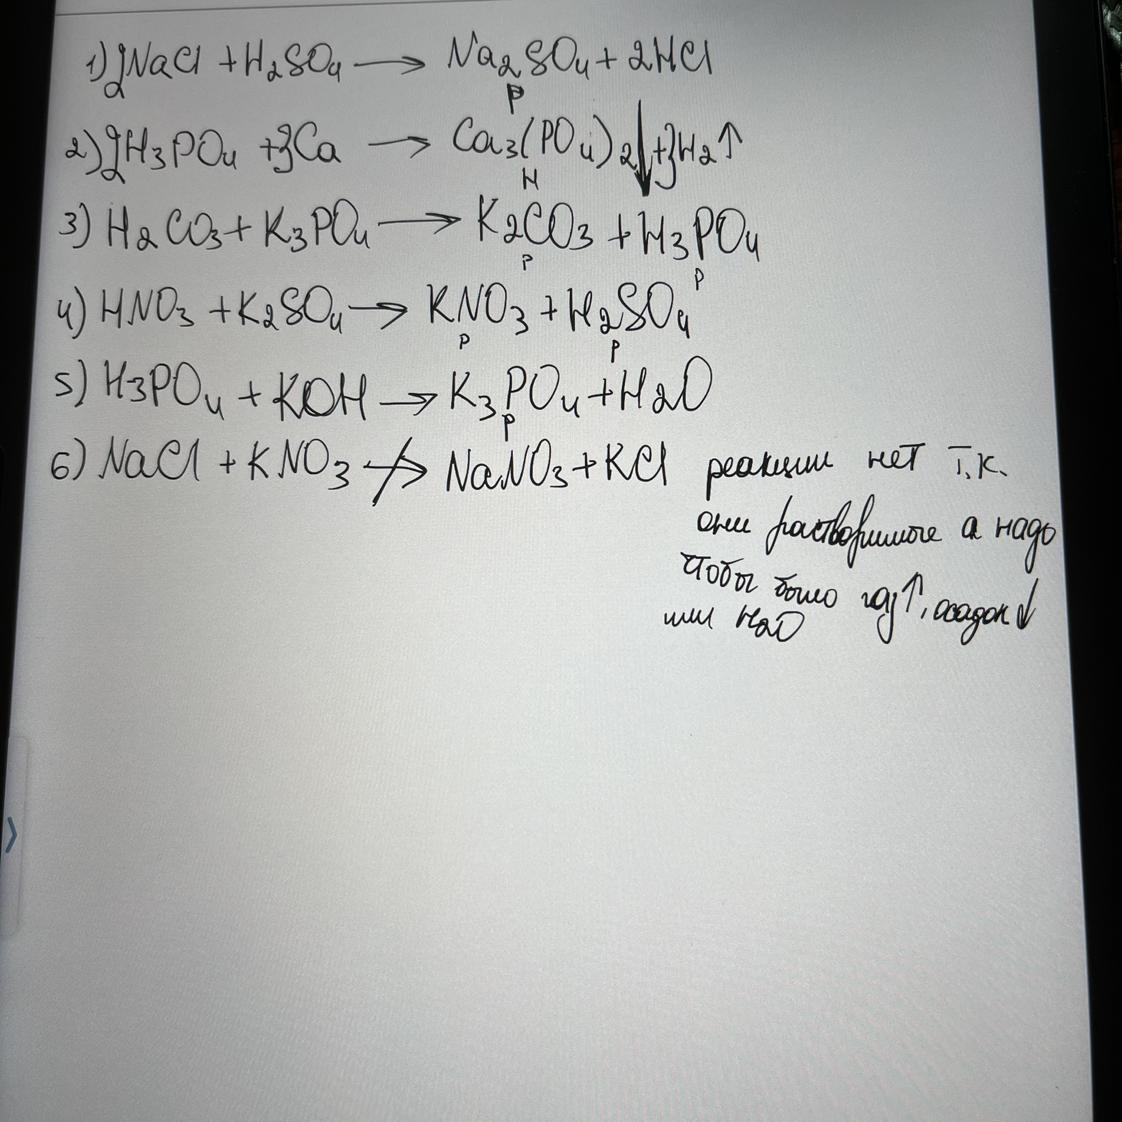 1) 2NaCl + H2SO4 → Na2SO4 + 2HCl
р
2) 2H3PO4 + 3Ca → Ca3(PO4)2↓ + 3H2↑
н
3) H2CO3 + K3PO4 → K2CO3 + H3PO4
р р
4) HNO3 + K2SO4 → KNO3 + H2SO4
р р
5) H3PO4 + KOH → K3PO4 + H2O
р
6) NaCl + KNO3 ↛ NaNO3 + KCl реакции нет т.к.
они растворимые а надо
чтобы было газ↑, осадок↓
или H2O